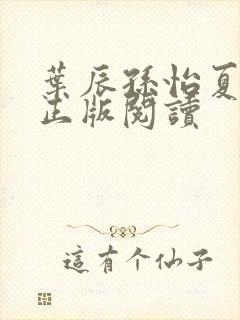 葉辰孫怡夏
正版閱讀
這有个仙子